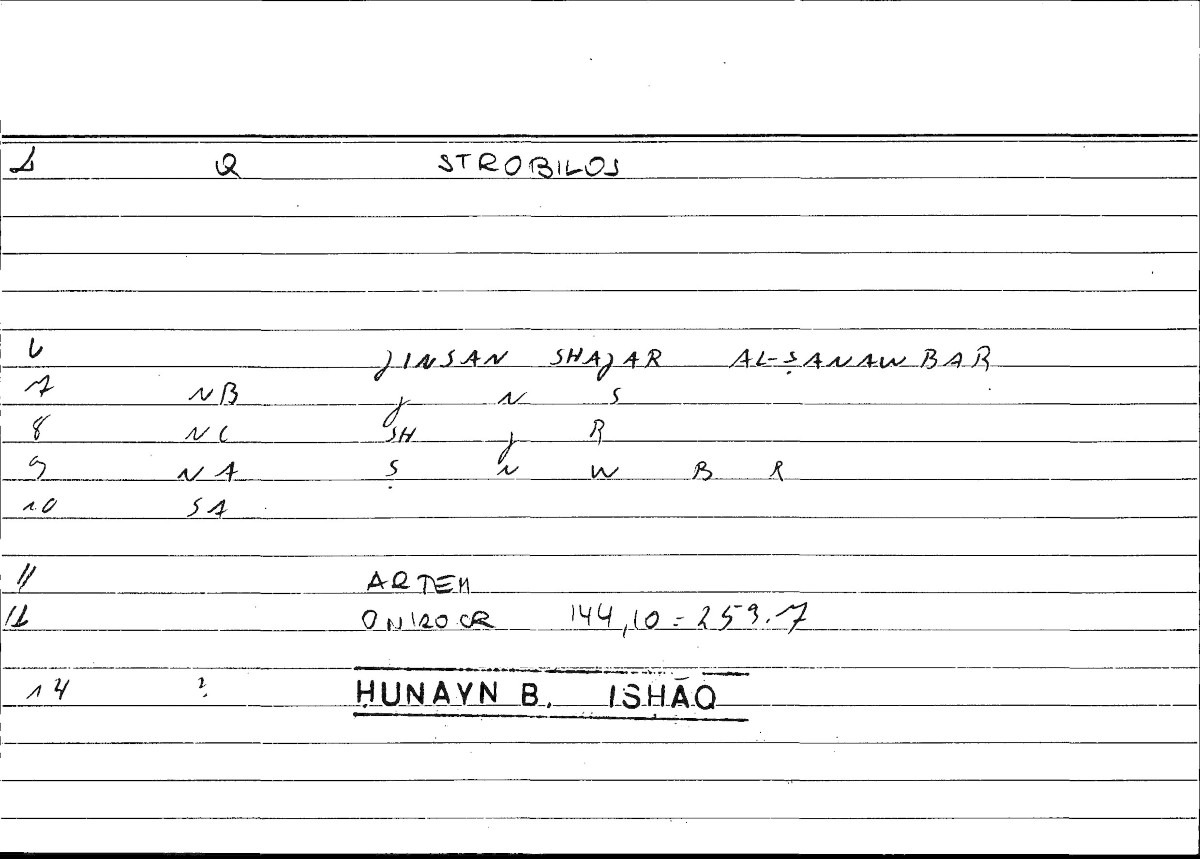 1 Q STROBILOS
6 JINSAN SHAJAR AL-ṢANAWBAR
7 NB J N S
8 NC SH J R
9 NA Ṣ N W B R
10 SA
11 ARTEM
12 ONIROCR 144,10 = 259.7
14 ? ḤUNAYN B. ISḤĀQ